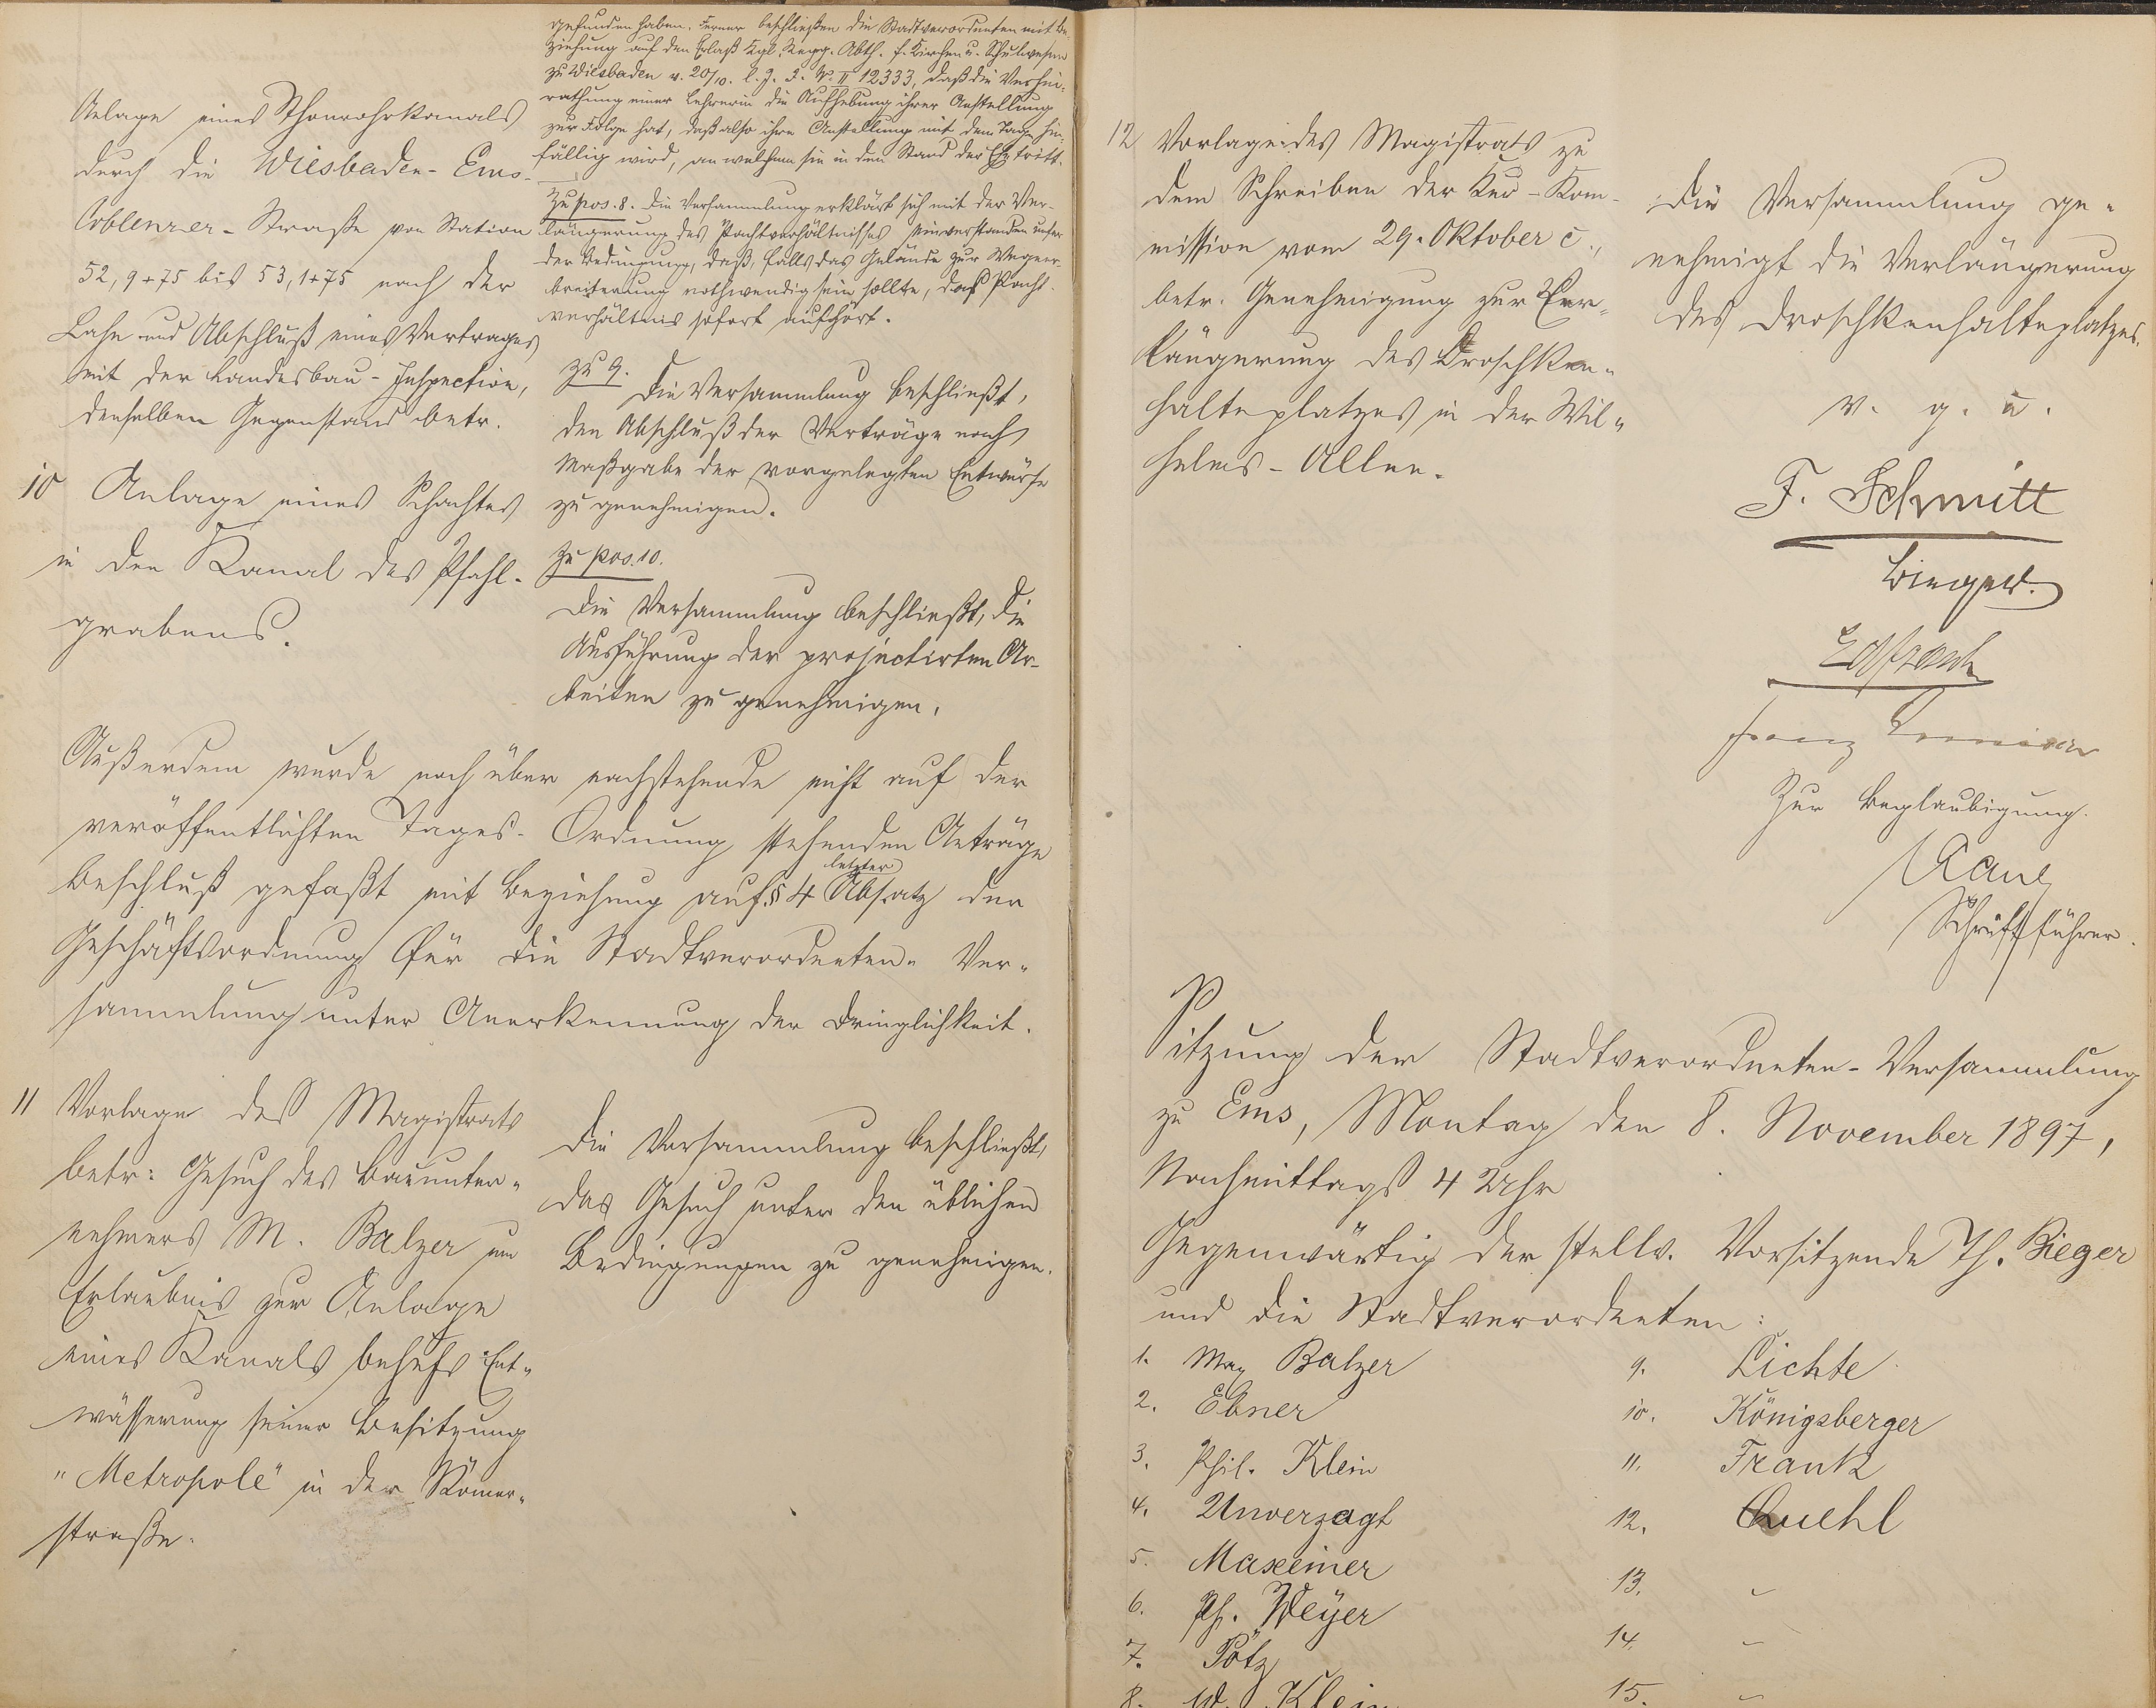 Anlage eines Thonrohrkanals
durch die Wiesbaden-Ems-
Coblenzer-Straße von Station
52,9+75 bis 53,1+75 nach der
Lahn und Abschluß eines Vertrages
mit der Landesbau-Inspection,
denselben Gegenstand betr.
10 Anlage eines Schachtes
in den Kanal des Pfahl-
grabens.
gefunden haben. Ferner beschließen die Stadtverordneten mit Be-
ziehung auf den Erlaß Kgl. Regg. Abth. f. Kirchen u. Schulwesen
zu Wiesbaden v. 20/10. l. J. J. No. II 12333, daß die Verhei-
rathung einer Lehrerin die Aufhebung ihrer Anstellung
zur Folge hat, daß also ihre Anstellung mit dem Tage hin-
fällig wird, an welchem sie in den Stand der Ehe tritt.
Zu pos. 8. Die Versammlung erklärt sich mit der Ver-
längerung des Pachtverhältnisses einverstanden unter
der Bedingung, daß, falls das Gelände zur Wegver-
breiterung nothwendig sein sollte, das Pacht-
verhältnis sofort aufhört.
zu 9.
Die Versammlung beschließt,
den Abschluß der Verträge nach
Maßgabe der vorgelegten Entwürfe
zu genehmigen.
Zu pos. 10.
Die Versammlung beschließt, die
Ausführung der projectirten Ar-
beiten zu genehmigen.
Außerdem wurde noch über nachstehende nicht auf der
veröffentlichten Tages-Ordnung stehenden Anträge
Beschluß gefaßt mit Beziehung auf § 4 letzter Absatz der
Geschäftsordnung für die Stadtverordneten-Ver-
sammlung unter Anerkennung der Dringlichkeit.
11 Vorlage des Magistrats
betr: Gesuch des Bauunter-
nehmers M. Balzer um
Erlaubnis zur Anlage
eines Kanals behufs Ent-
wässerung seiner Besitzung
"Metropole" in der Römer-
straße.
Die Versammlung beschließt,
das Gesuch unter den üblichen
Bedingungen zu genehmigen.
12 Vorlage des Magistrats zu
dem Schreiben der Kur-Kom-
mission vom 29. Oktober c.,
betr. Genehmigung zur Ver-
längerung des Droschken-
halteplatzes in der Wil-
helms-Allee.
Die Versammlung ge-
nehmigt die Verlängerung
des Droschkenhalteplatzes.
v. g. u.
F. Schmitt
Franz
Zur Beglaubigung.
Kaul
Schriftführer.
Sitzung der Stadtverordneten-Versammlung
zu Ems, Montag den 8. November 1897,
Nachmittags 4 Uhr
Gegenwärtig der stellv. Vorsitzende Th. Rieger
und die Stadtverordneten:
1. Max Balzer
2. Ebner
3. Phil. Klein
4. Unverzagt
5. Maxeiner
6. Ph. Weyer
7. Pötz
8. W. Klein
9. Lichte
10. Königsberger
11. Frank
12. Quehl
13. -
14. -
15. -